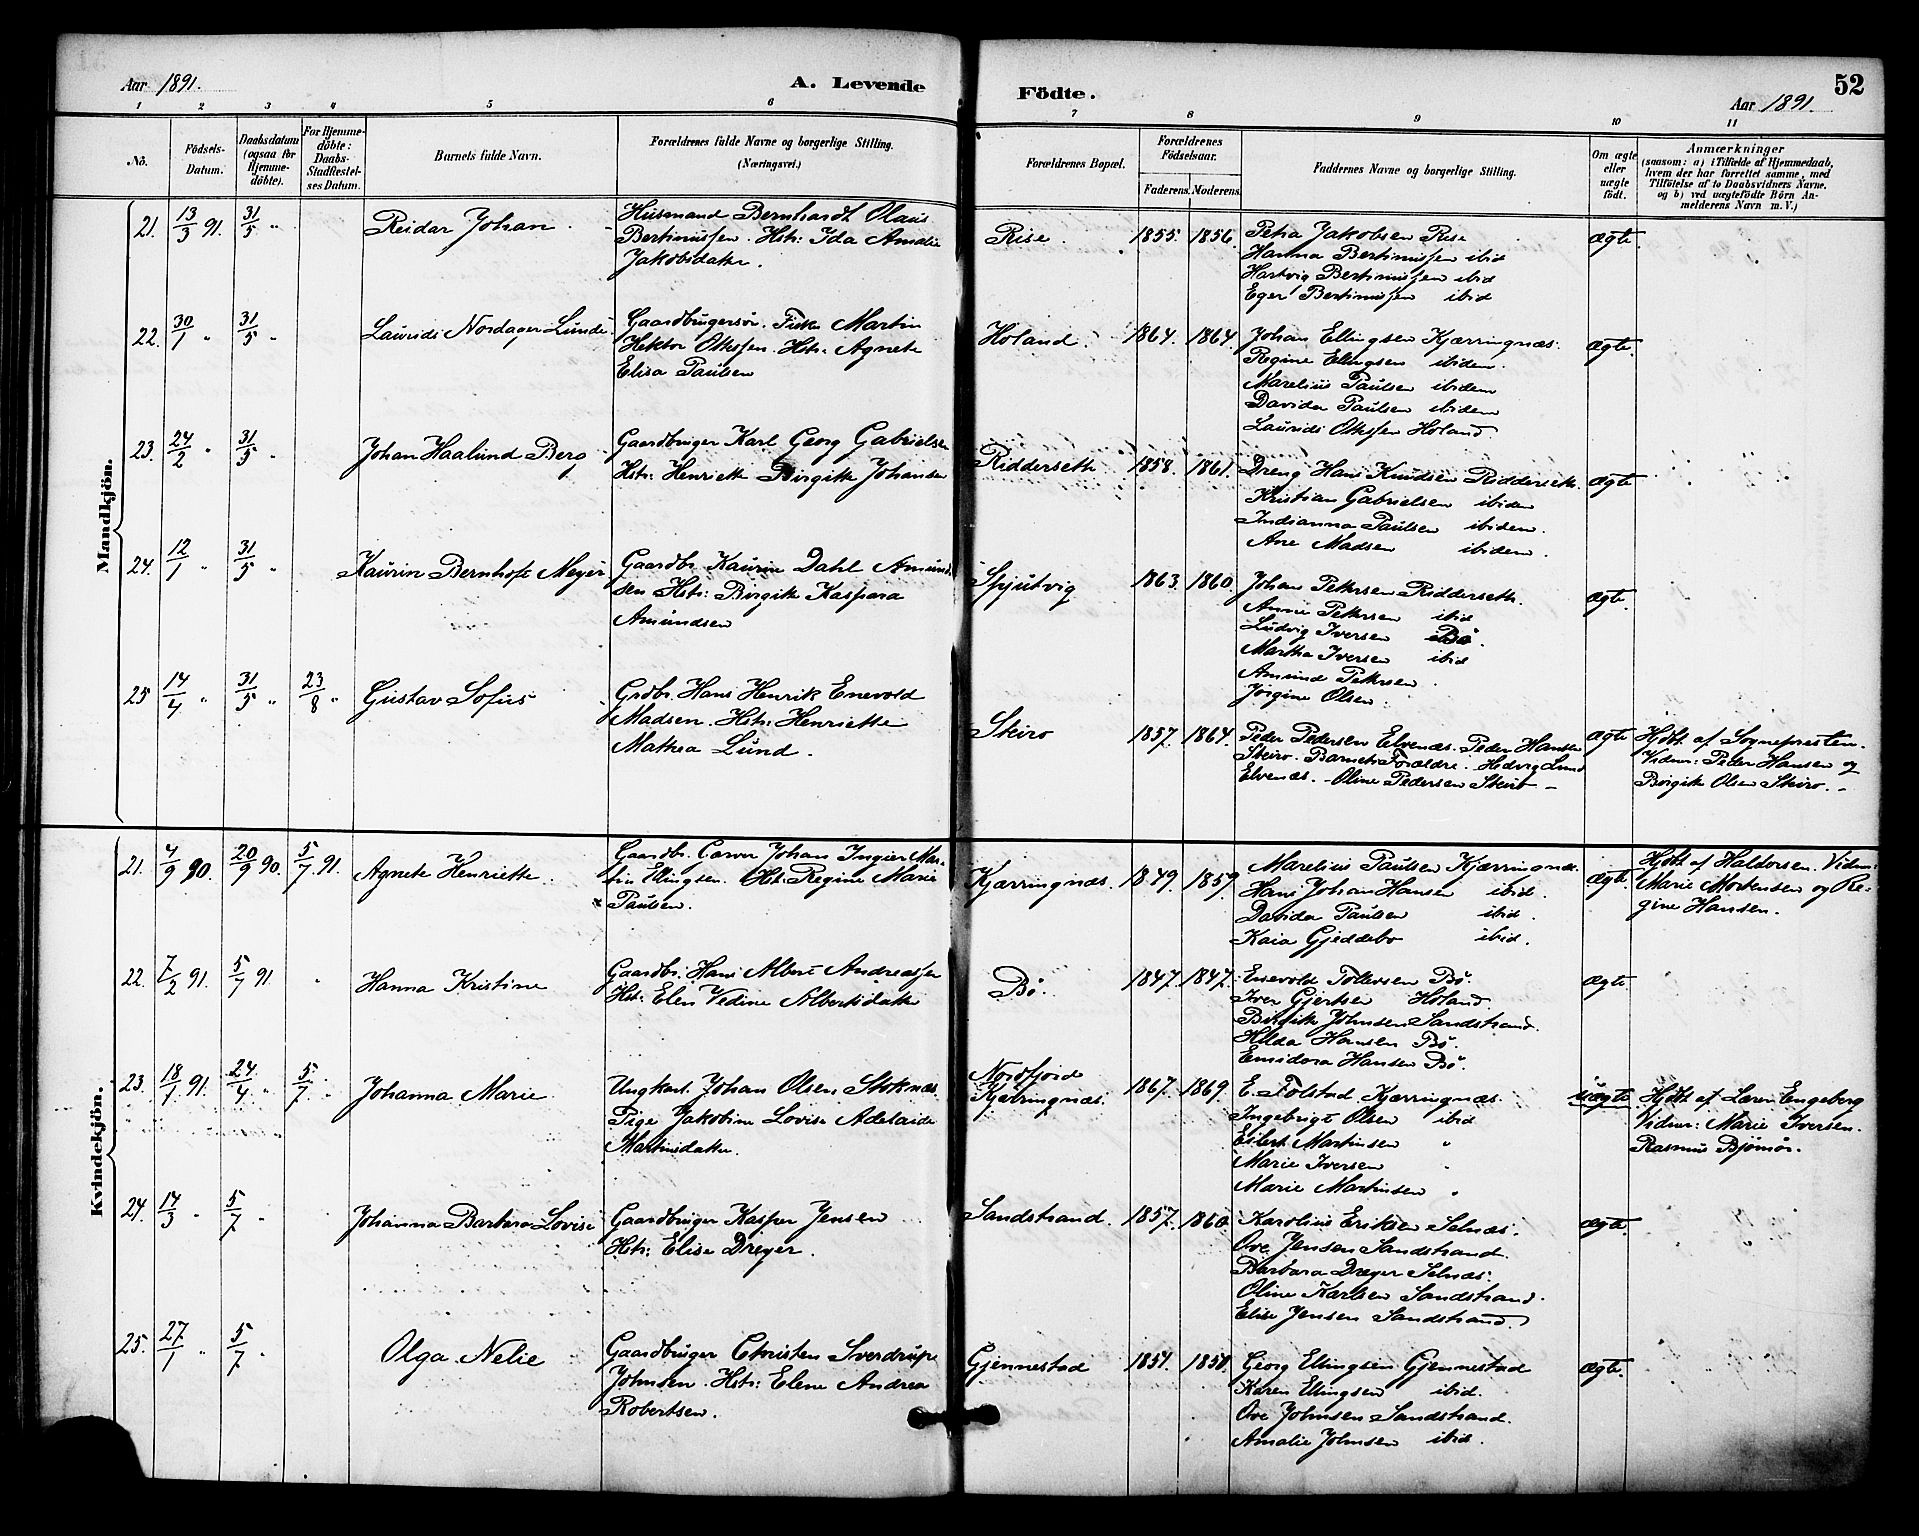 Aar 1891.
A. Levende Födte.
52
Aar 1891.
1 2 3 4 5 6 7 8 9 10 11
Nö.
Födsels-Datum.
Daabsdatum (ogsaa for Hjemme-döbte).
For Hjemme-döbte: Daabs-Stadfæstel-ses Datum.
Barnets fulde Navn.
Forældrenes fulde Navne og borgerlige Stilling.
(Næringsvei.)
Forældrenes Bopæl.
Forældrenes Födselsaar.
Faderens. Moderens.
Faddernes Navne og borgerlige Stilling.
Om ægte eller uægte födt.
Anmærkninger
(saasom: a) i Tilfælde af Hjemmedaab,
hvem der har forrettet samme, med
Tilföielse af to Daabsvidners Navne.
og b) ved uægtefödte Börn An-
melderens Navn m. V.)
Mandkjön.
21. 13/3 91. 31/5 " Reidar Johan
Husmand Bernhardt Olaus
Bertinussen. Hstr: Ida Amalie
Jakobsdatter.
Rise. 1855. 1856.
Petra Jakobsen Rise
Hanna Bertinussen ibid
Hartvig Bertinussen ibid
Eger Bertinussen ibid
ægte.
22. 30/1 " 31/5 " Laurids Nordager Lunde
Gaardbrugersön. Fisker Martin
Hektor Ottesen. Hstr: Agnete
Elisa Paulsen
Holand. 1864. 1864.
Johan Ellingsen Kjærringnæs.
Regine Ellingsen ibidem.
Marelius Paulsen ibidem
Davida Paulsen ibidem
Laurids Ottesen Holand.
ægte.
23. 24/2 " 31/5 " Johan Haalund Berg
Gaardbruger Karl Georg Gabrielsen
Hstr: Henriette Birgitte Johansen
Ridderseth 1858. 1861.
Dreng Hans Knudsen Ridderseth.
Kristian Gabrielsen ibidem
Indianna Paulsen ibidem.
Ane Madsen ibidem.
ægte
24. 12/1 " 31/5 " Kaurin Bernhoft Meyer
Gaardbr. Kaurin Dahl Amund-
sen Hstr: Birgitte Kaspara
Amundsen
Spjutvig 1863. 1860.
Johan Pettersen Ridderseth.
Anne Pettersen ibid
Ludvig Iversen Bö.
Martha Iversen ibid
Amund Pettersen.
Jörgine Olsen.
ægte.
25 14/4 " 31/5 " 23/8 " Gustav Sofus
Grdbr. Hans Henrik Enevold
Madsen. Hstr: Henriette
Mathea Lund.
Skiro 1857. 1864.
Peder Pedersen Elvenæs. Peder Hansen
Skiro. Barnets Forældre. Hedvig Lund
Elvenæs. - Oline Pedersen Skiro -
ægte
Hjdbt. af Sognepresten.
Vidner: Peder Hansen og
Birgitte Olsen Skiro. -
Kvindekjön.
21. 4/9 90. 20/9 90. 5/7 91. Agnete Henriette.
Gaardbr. Carver Johan Ingier Mar-
tin Ellingsen. Hst: Regine Marie
Paulsen.
Kjærringnæs. 1849. 1859.
Marelius Paulsen Kjærringnæs.
Hans Johan Hansen ibid.
Davida Paulsen ibid.
Kaia Gjeddebo ibid.
ægte.
Hjdbt. af Haldorsen. Vidner:
Marie Mortensen og Re-
gine Hansen.
22. 7/2 91. 5/7 91 " Hanna Kristine
Gaardbr. Hans Albert Andreassen
Hst: Elen Vedine Albertsdatter
Bö. 1847. 1847.
Enevold Tollevsen Bö.
Iver Gjertsen Holand.
Birgitte Johnsen Sandstrand.
Hilda Hansen Bö.
Emidora Hansen Bö.
ægte.
23. 18/1 91. 24/4 " 5/7 " Johanna Marie.
Ungkarl. Johan Olsen Stoknæs
Pige Jakobine Lovise Adelaide
Martinsdatter.
Nordfjord
Kjærringnæs. 1867. 1869
E. Tolstad Kjærringnæs.
Ingebrigt Olsen ibid
Eilert Martinsen "
Marie Iversen "
Marie Martinsen "
uægte
Hjdbt. af Lærer Engeberg
Vidner: Marie Iversen.
Rasmus Björnör.
24. 14/3 " 5/7 " Johanna Barbara Lovise
Gaardbruger Kasper Jensen
Hstr: Elise Dreyer.
Sandstrand. 1857. 1860.
Karolius Eriksen Selnæs.
Ove Jensen Sandstrand.
Barbara Dreyer Selnæs.
Oline Karlsen Sandstrand.
Elise Jensen Sandstrand.
ægte.
25. 27/1 " 5/7 " Olga Nelie
Gaardbruger Christen Sverdrup
Johnsen. Hstr: Elene Andrea
Robertsen.
Gjennestad 1851. 1850.
Georg Ellingsen Gjennestad
Karen Ellingsen ibid.
Ove Johnsen Sandstrand.
Amalie Johnsen ibid.
ægte.